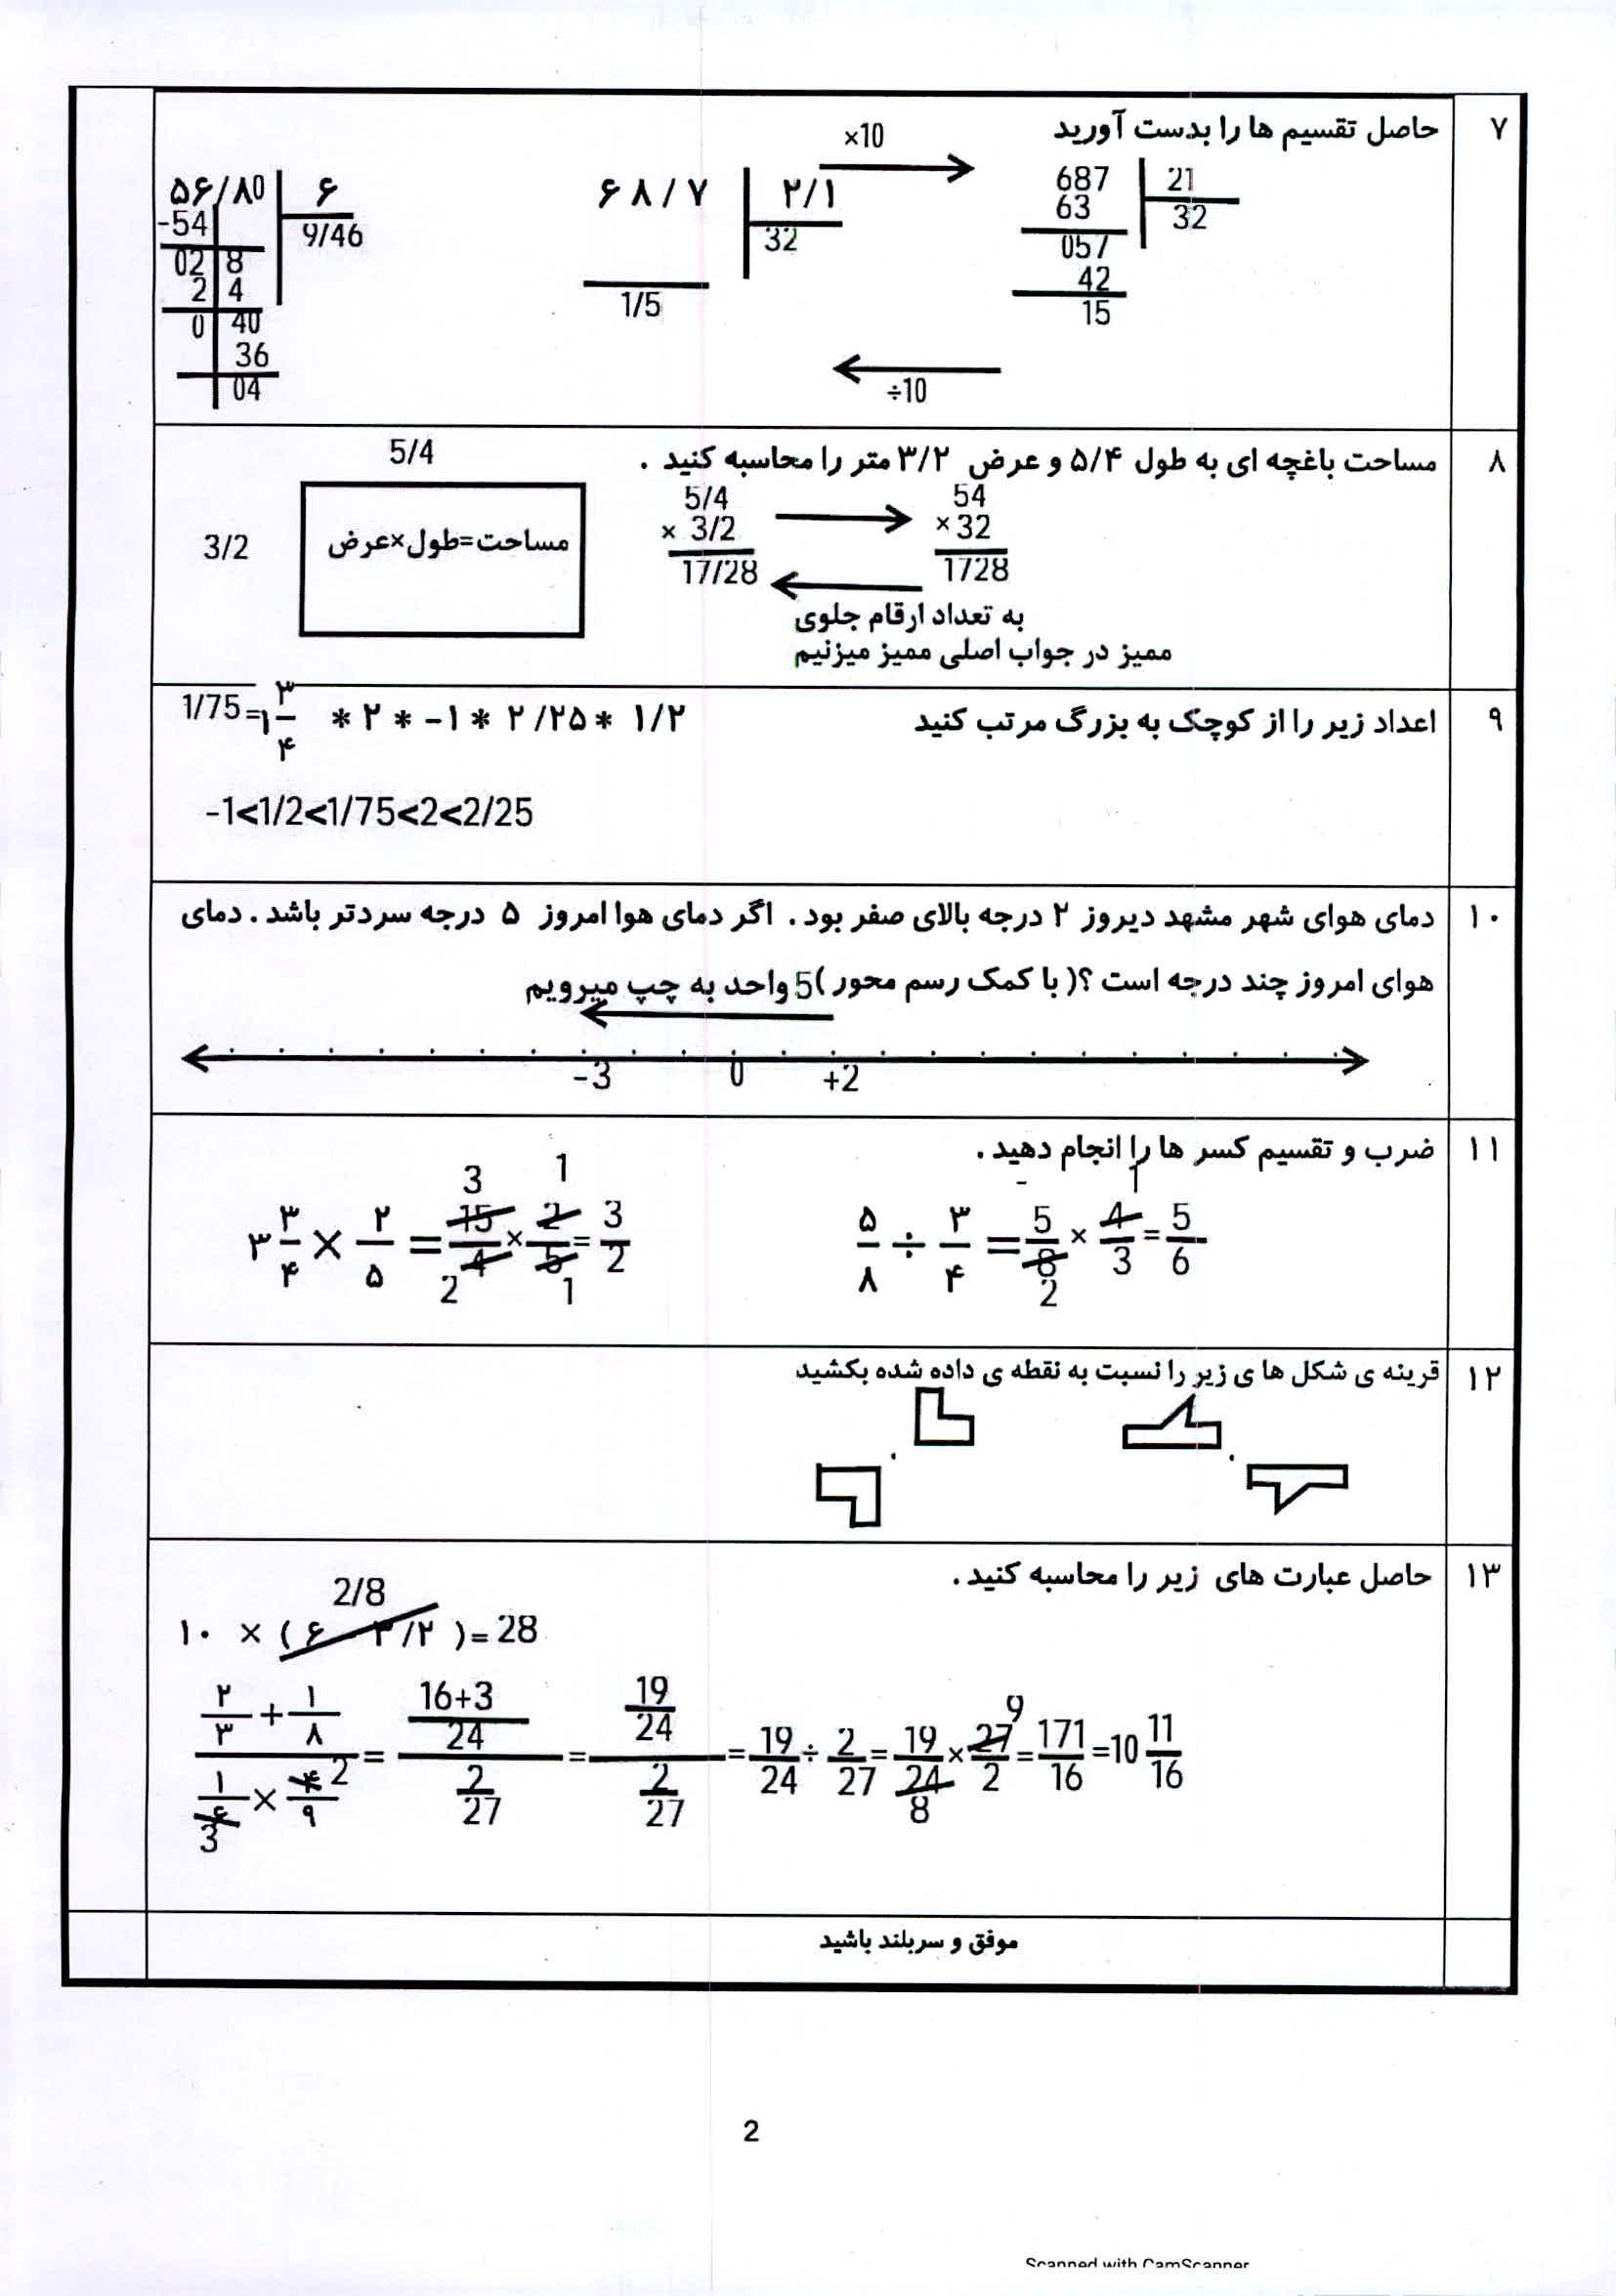 ۷
حاصل تقسیم ها را بدست آورید
×10
687 21
63 32
057
42
15
۶۸/۷ ۲/۱
32
1/5
÷10
۵۶/۸0 ۶
-54 9/46
02 8
2 4
0 40
36
04
۸
مساحت باغچه ای به طول ۵/۴ و عرض ۳/۲ متر را محاسبه کنید .
5/4
3/2
مساحت=طول×عرض
5/4
× 3/2
17/28
54
×32
1728
به تعداد ارقام جلوی
ممیز در جواب اصلی ممیز میزنیم
۹
اعداد زیر را از کوچک به بزرگ مرتب کنید
1/75=۱ ۳/۴ * ۲ * -۱ * ۲/۲۵ * ۱/۲
-1<1/2<1/75<2<2/25
۱۰
دمای هوای شهر مشهد دیروز ۲ درجه بالای صفر بود . اگر دمای هوا امروز ۵ درجه سردتر باشد . دمای
هوای امروز چند درجه است ؟( با کمک رسم محور )5 واحد به چپ میرویم
-3 0 +2
۱۱
ضرب و تقسیم کسر ها را انجام دهید .
۵/۸ ÷ ۳/۴ = 5/8 × 4/3 = 5/6
1
2
۳ ۳/۴ × ۲/۵ = 15/4 × 2/5 = 3/2
3 1
2 1
۱۲
قرینه ی شکل ها ی زیر را نسبت به نقطه ی داده شده بکشید
۱۳
حاصل عبارت های زیر را محاسبه کنید .
2/8
۱۰ × ( ۶ - ۳/۲ )= 28
۲/۳ + ۱/۸ = 16+3/24 = 19/24 = 19/24 ÷ 2/27 = 19/24 × 27/2 = 171/16 =10 11/16
۱/۶ × ۴/۹ 2/27 2/27
2
3
9
8
موفق و سربلند باشید
2
Scanned with CamScanner